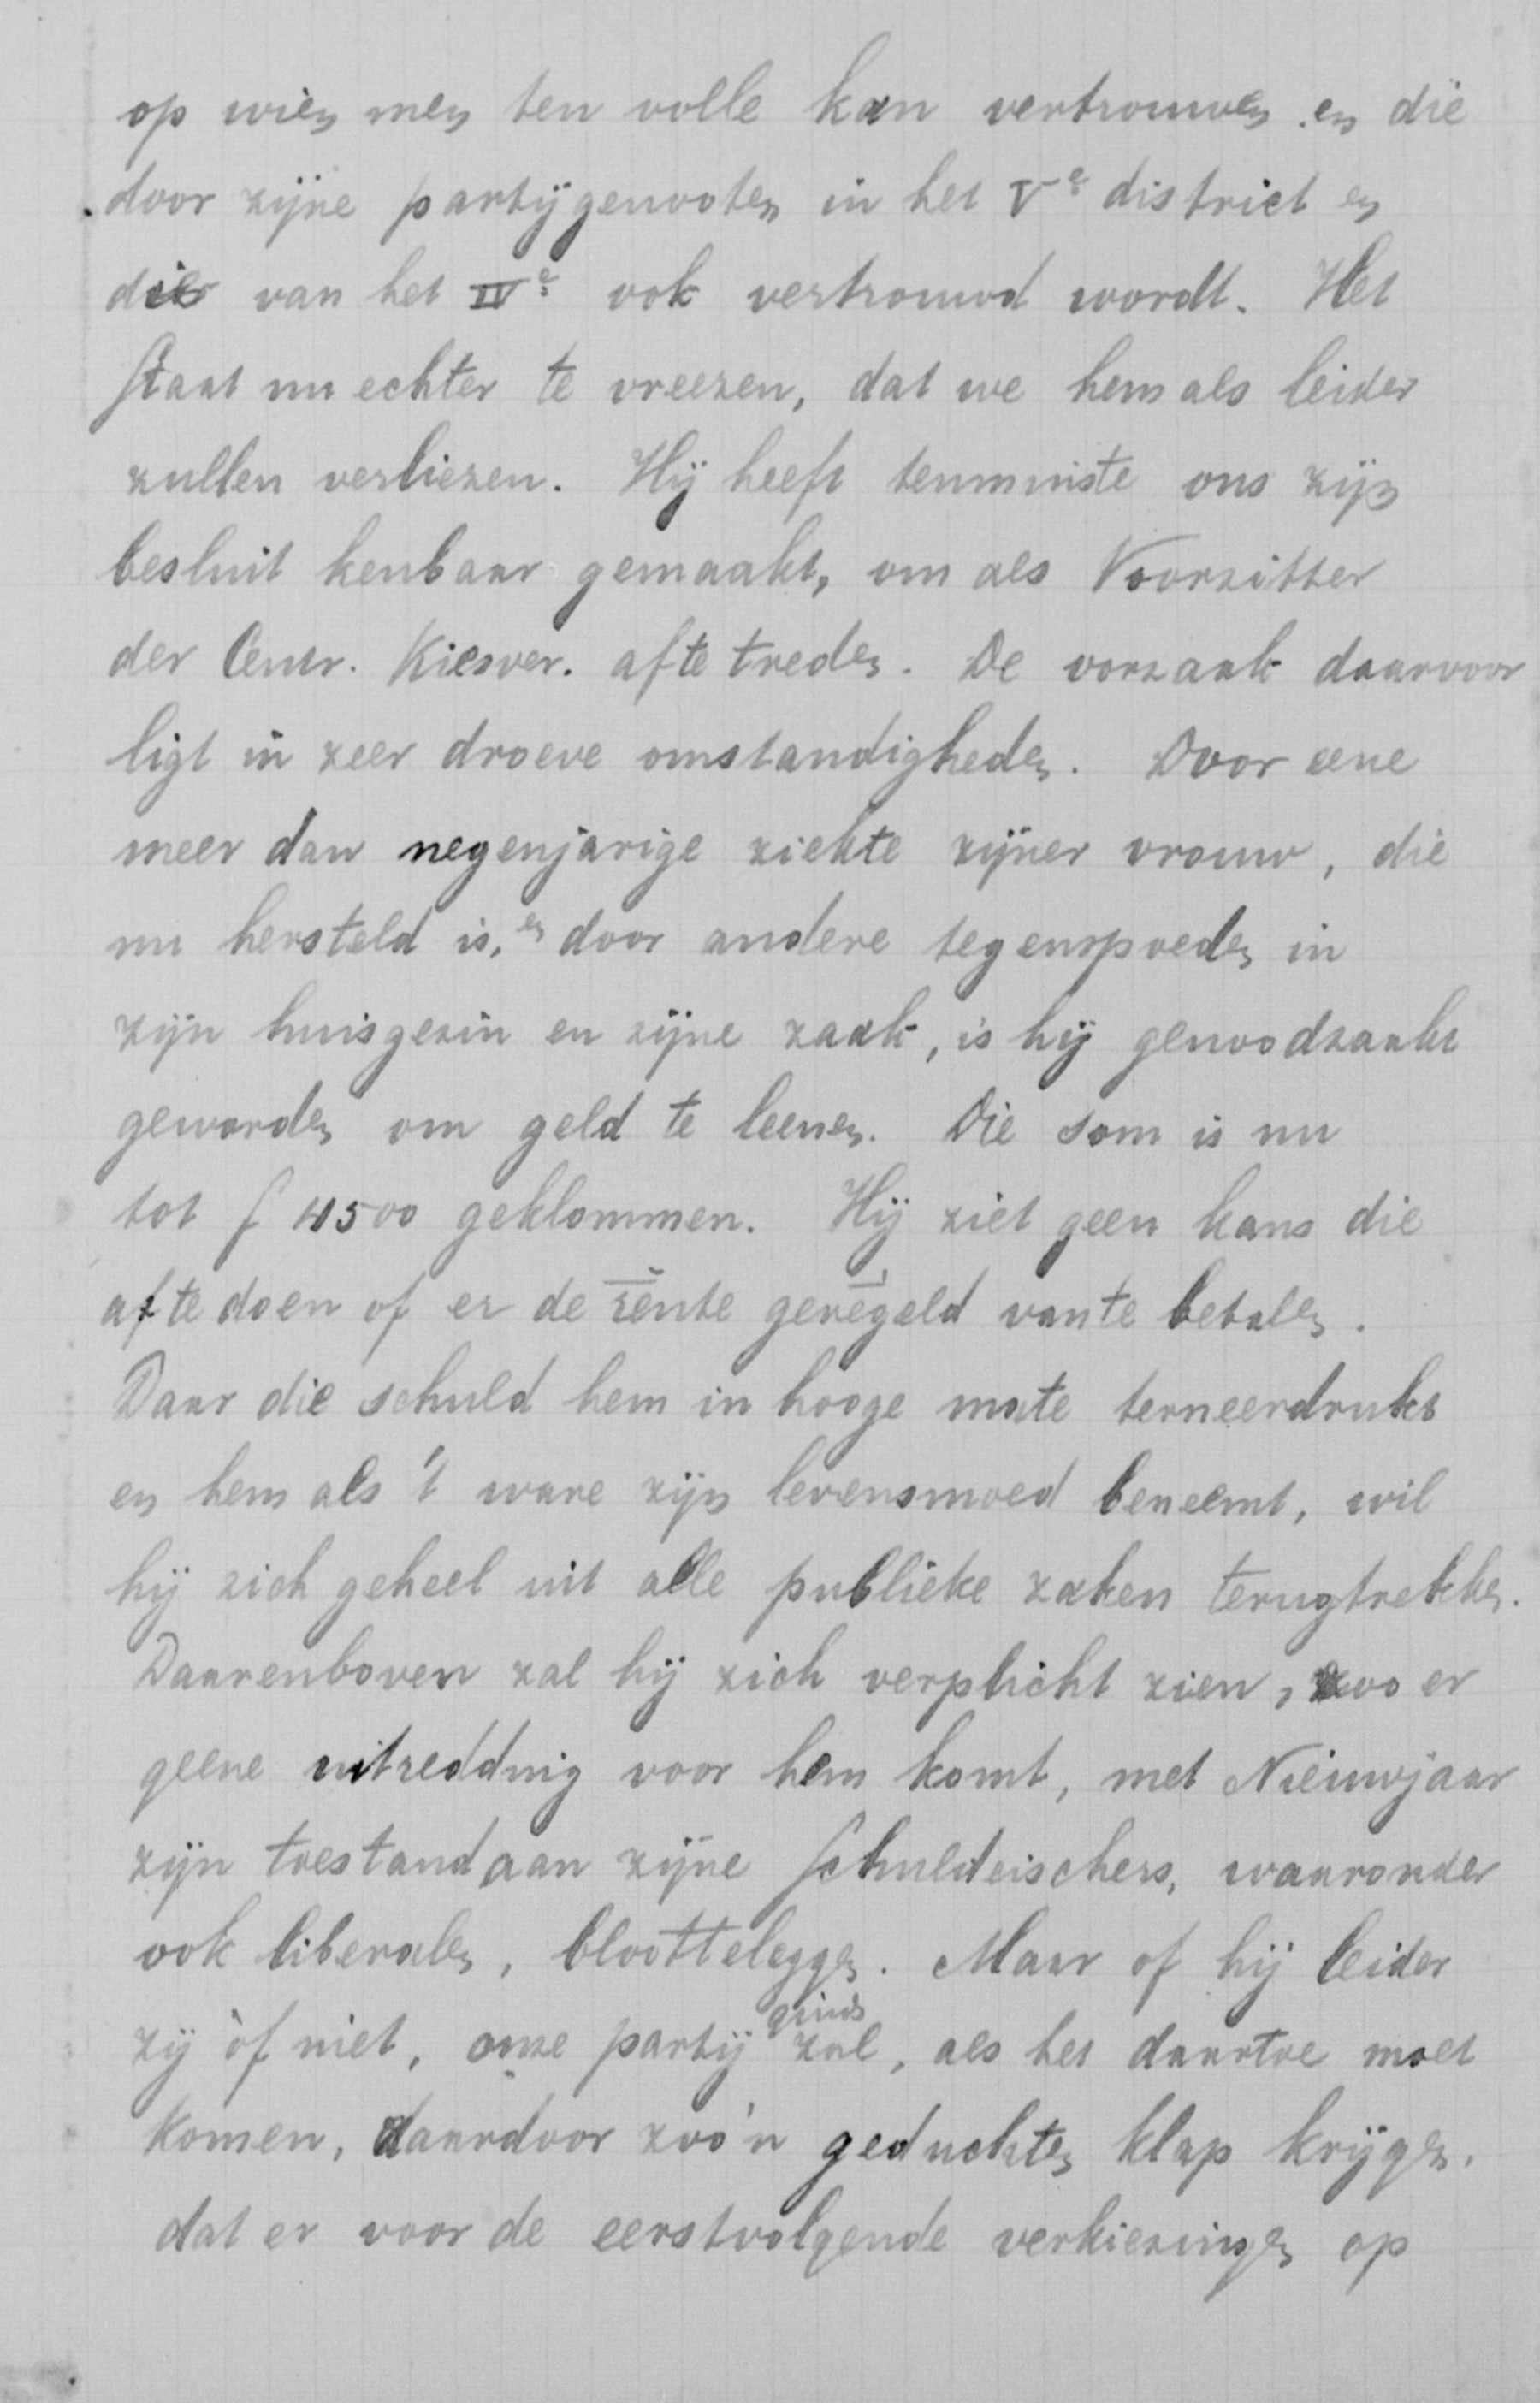 op wien men ten volle kan vertrouwen en die
door zijne partijgenooten in het Ve district en
die van het IVe ook vertrouwd wordt. Het
staat nu echter te vreezen, dat we hem als leider
zullen verliezen. Hij heeft tenminste ons zijn
besluit kenbaar gemaakt, om als Voorzitter
der Centr. Kiesver. af te treden. De oorzaak daarvoor
ligt in zeer droeve omstandigheden. Door eene
meer dan negenjarige ziekte zijner vrouw, die
nu hersteld is, en door andere tegenspoeden in
zijn huisgezin en zijne zaak, is hij genoodzaakt
geworden om geld te leenen. Die som is nu
tot f 4500 geklommen. Hij ziet geen kans die
af te doen of er de rente geregeld van te betalen.
Daar die schuld hem in hooge mate terneerdrukt
en hem als 't ware zijn levensmoed beneemt, wil
hij zich geheel uit alle publieke zaken terugtrekken.
Daarenboven zal hij zich verplicht zien, zoo er
geene uitredding voor hem komt, met Nieuwjaar
zijn toestand aan zijne schuldeischers, waaronder
ook liberalen, bloot te leggen. Maar of hij leider
zij òf niet, onze partij ginds zal, als het daartoe moet
komen, daardoor zoo'n geduchten klap krijgen,
dat er voor de eerstvolgende verkiezingen op